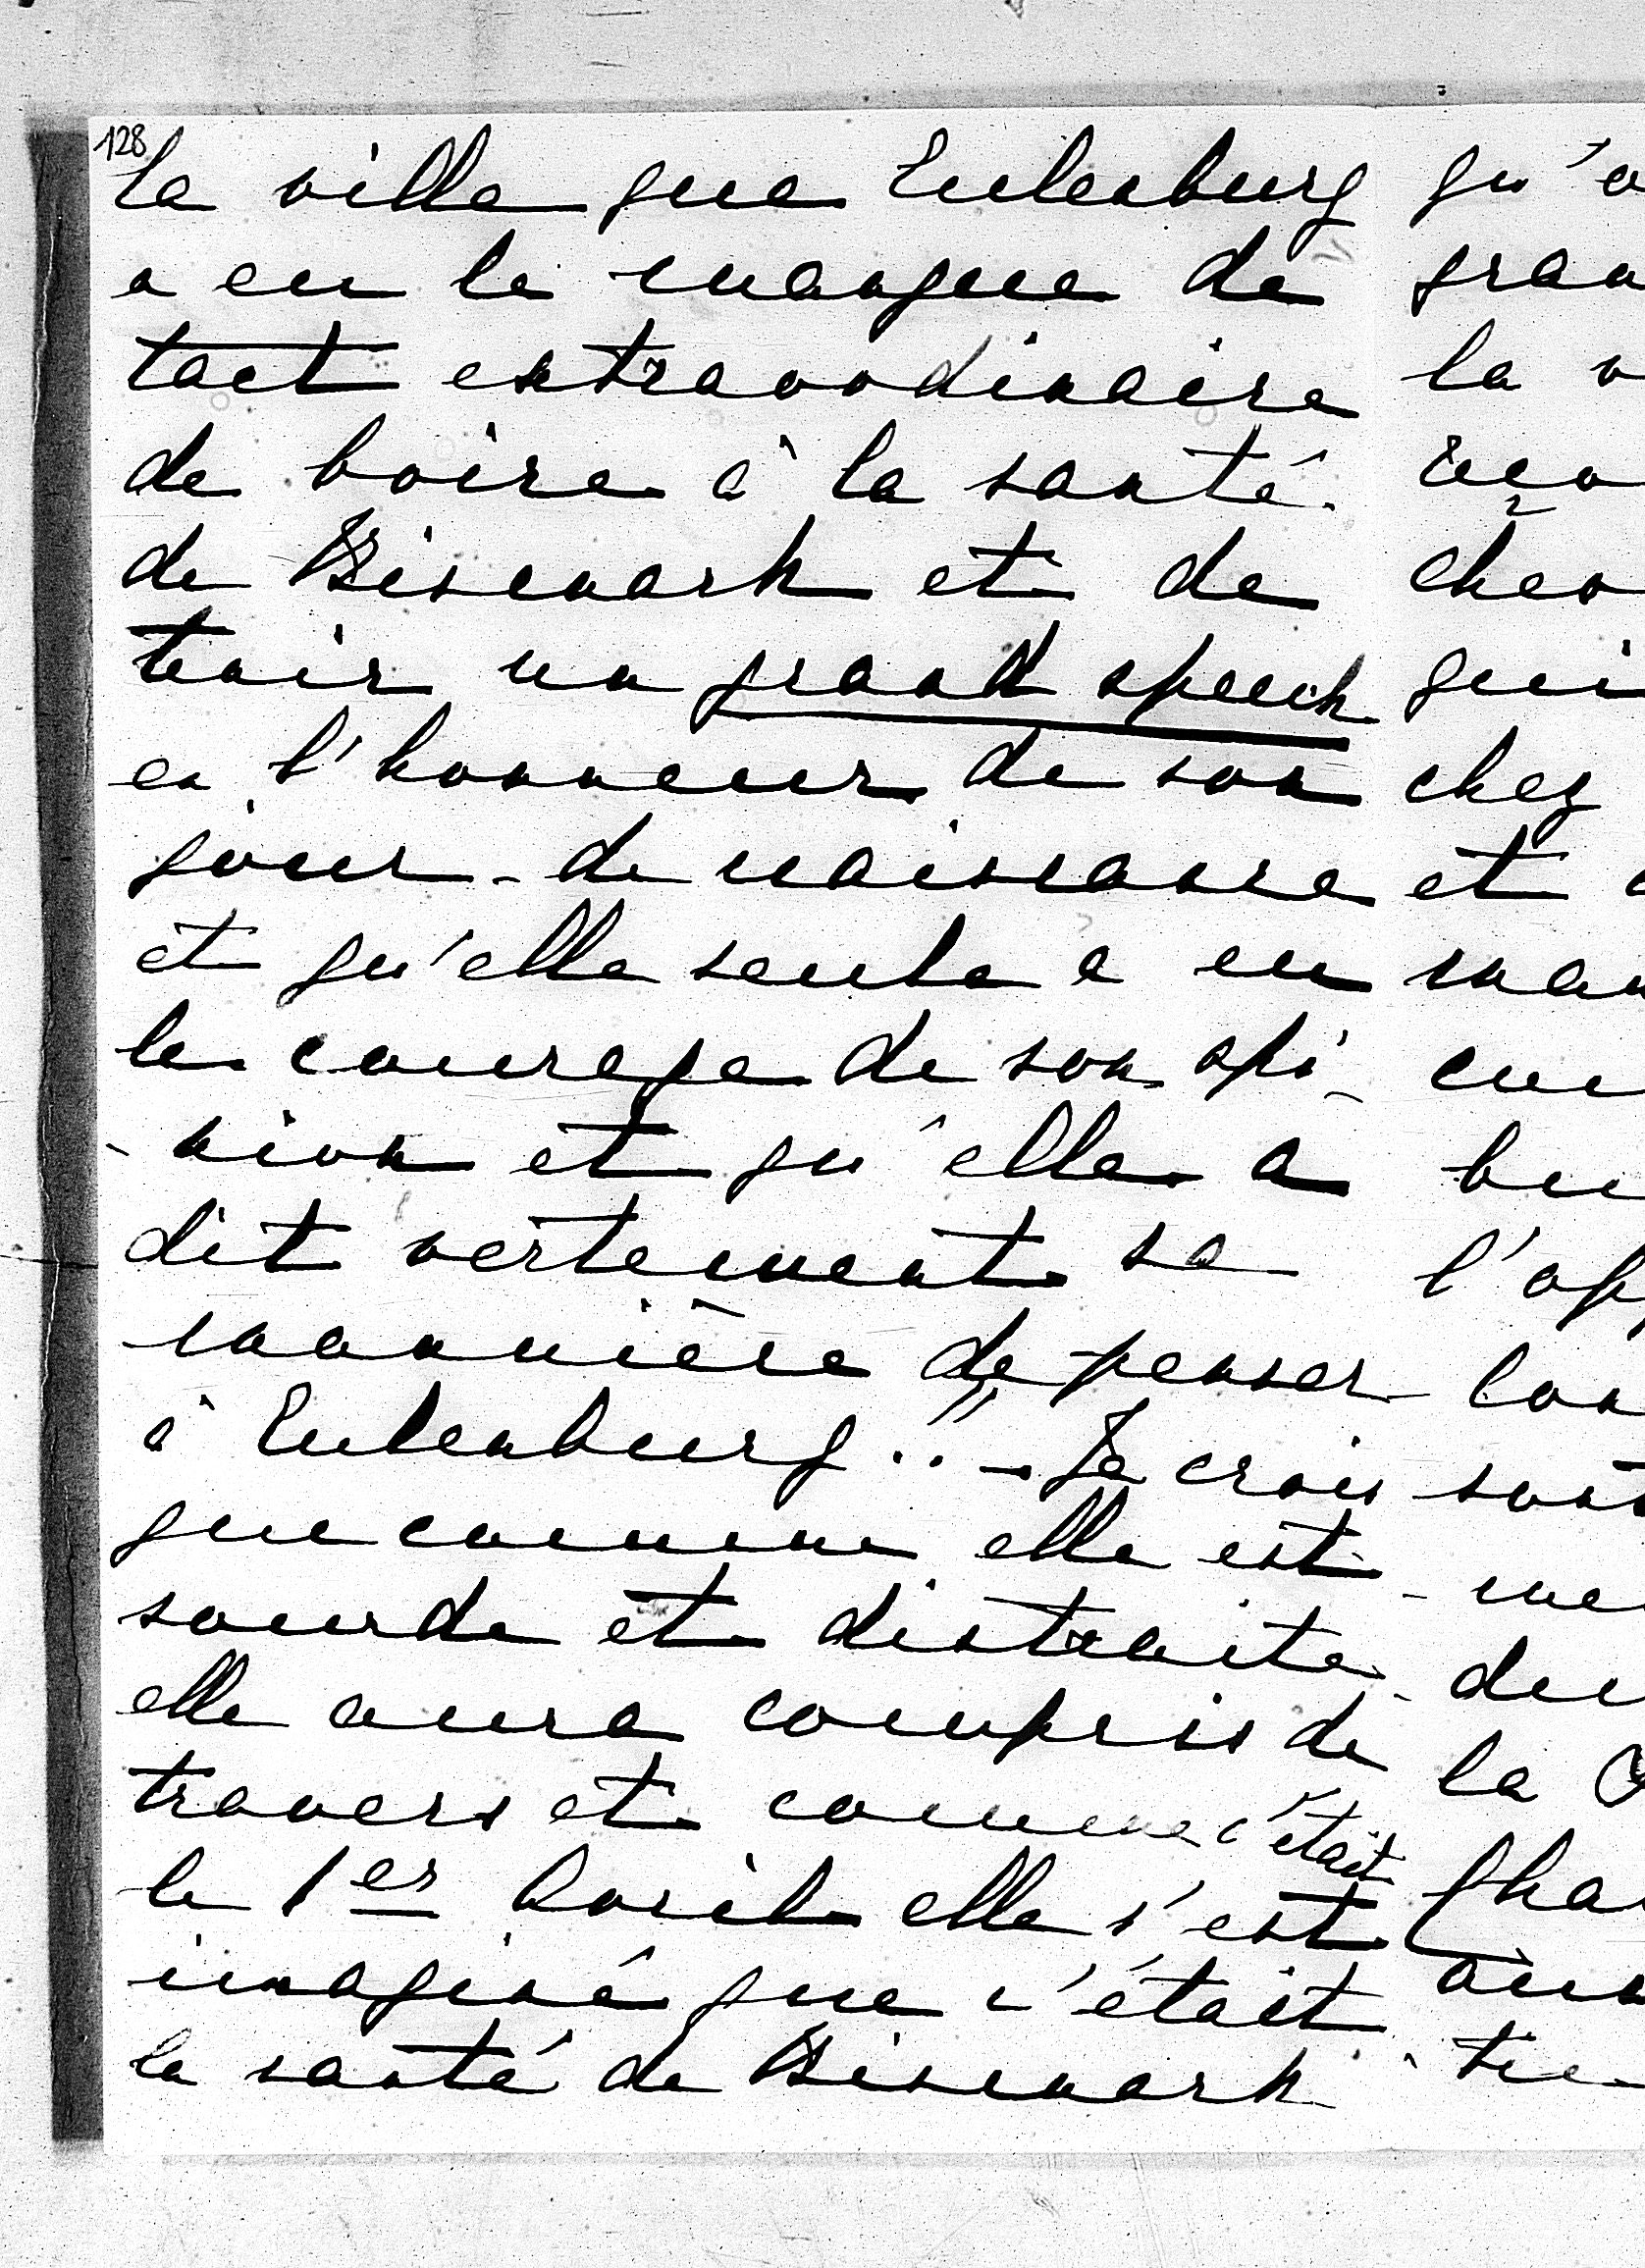 128
la ville que Eulenburg
a eu le manque de
tact extraordinaire
de boire à la santé
de Bismark et de
tenir un grand speech
en l'honneur de son
jour de naissance
et qu'elle seule a eu
le courage de son opi-
-nion et qu'elle a
dit vertement sa
mannière de penser
à Eulenburg!! - Je crois
que comme elle est
sourde et distraite
elle aura compris de
travers et comme c'était
le 1er Avril elle s'est
imaginé que c'était
la santé de Bismark
qu'a
gran
la v
reço
cher
qui
chez
et
man
cui
bu
l'op
lon
sont
-me
du
la
Phar
aus
tre